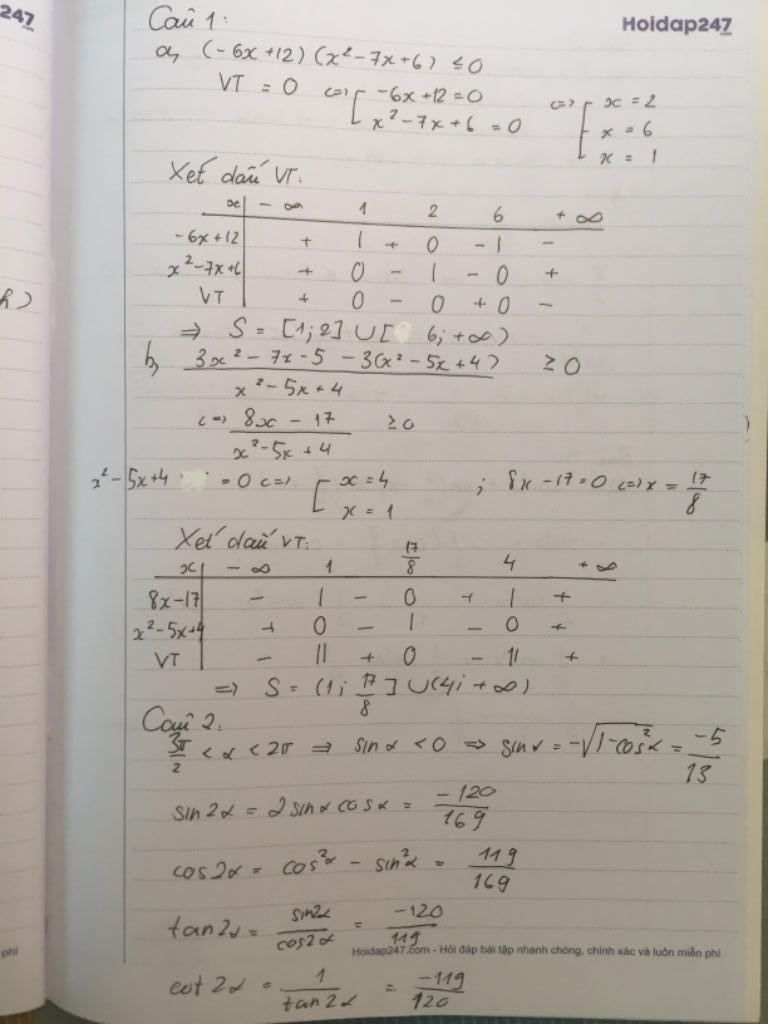 247
Hoidap247
.com
Câu 1:
a, (-6x+12)(x²-7x+6) ≤0
VT = 0 <=> [ -6x+12=0 <=> [ x=2
x²-7x+6=0 x=6
x=1
Xét dấu VT:
x | -∞ 1 2 6 +∞
-6x+12 | + | + 0 - | -
x²-7x+6 | + 0 - | - 0 +
VT | + 0 - 0 + 0 -
=> S = [1;2] ∪ [6;+∞)
b, 3x²-7x-5-3(x²-5x+4) ≥0
x²-5x+4
<=> 8x-17 ≥0
x²-5x+4
x²-5x+4 =0 <=> [ x=4 ; 8x-17=0 <=> x= 17/8
x=1
Xét dấu VT:
x | -∞ 1 17/8 4 +∞
8x-17 | - | - 0 + | +
x²-5x+4 | + 0 - | - 0 +
VT | - || + 0 - || +
=> S = (1; 17/8] ∪ (4; +∞)
h)
Câu 2:
3π/2 < α < 2π => sinα < 0 => sinα = -√(1-cos²α) = -5/13
sin2α = 2sinα cosα = -120/169
cos2α = cos²α - sin²α = 119/169
tan2α = sin2α/cos2α = -120/119
phí
Hoidap247.com - Hỏi đáp bài tập nhanh chóng, chính xác và luôn miễn phí
cot2α = 1/tan2α = -119/120